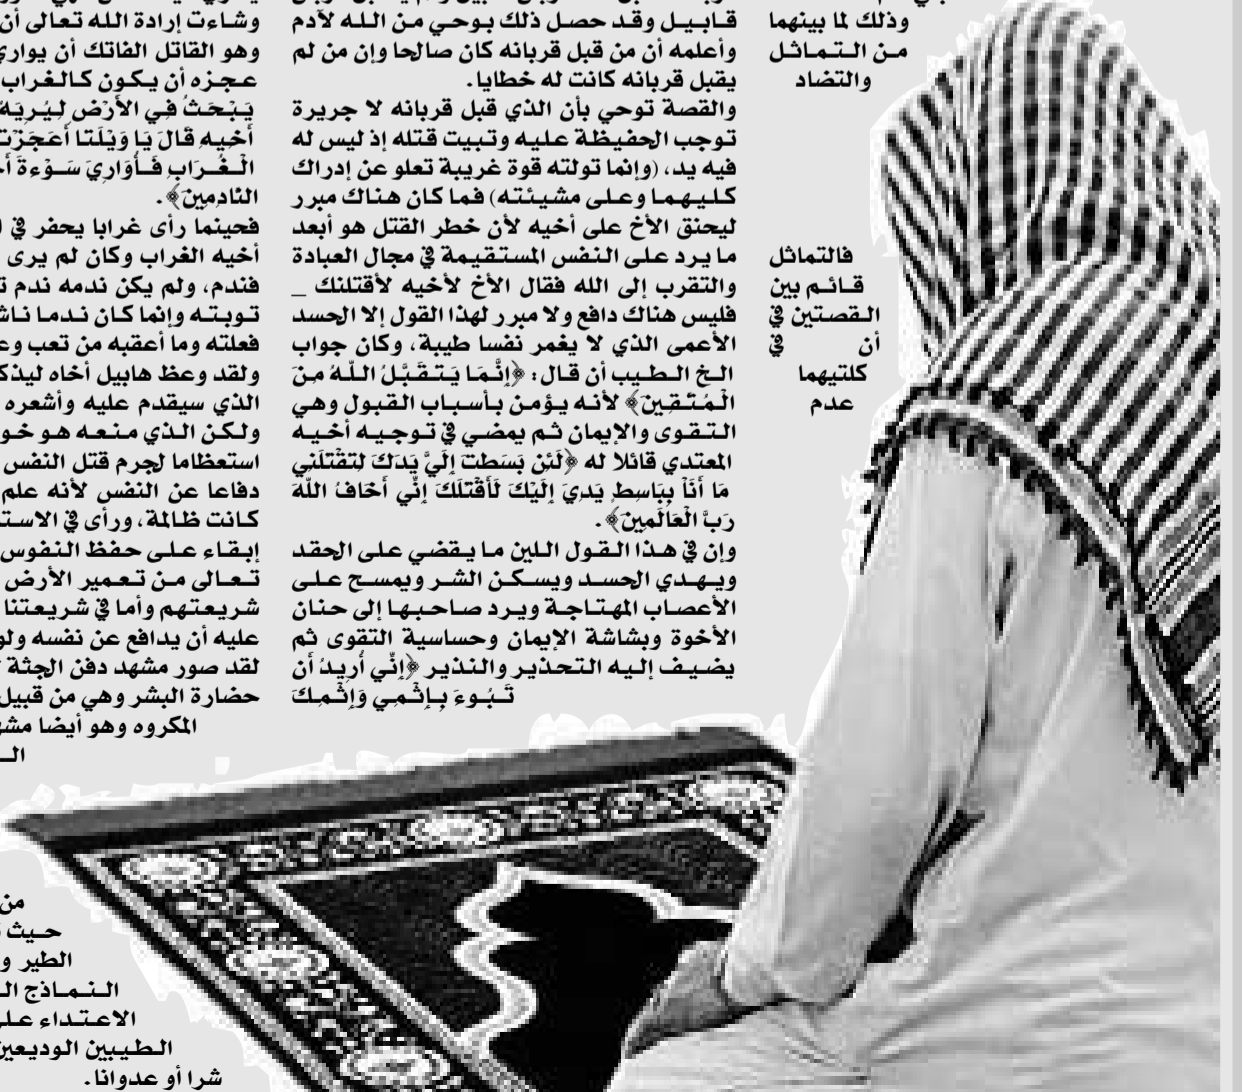 وذلك لما بينهما
من التماثل
والتضاد
فالتماثل
قائم بين
القصتين في
أن في
كلتيهما
عدم
قابيل وقد حصل ذلك بوحي من الله لآدم
وأعلمه أن من قبل قربانه كان صالحا وإن من لم
يقبل قربانه كانت له خطايا.
والقصة توحي بأن الذي قبل قربانه لا جريرة
توجب الحفيظة عليه وتبيت قتله إذ ليس له
فيه يد، (وإنما تولته قوة غريبة تعلو عن إدراك
كليهما وعلى مشيئته) فما كان هناك مبرر
ليحنق الأخ على أخيه لأن خطر القتل هو أبعد
ما يرد على النفس المستقيمة في مجال العبادة
والتقرب إلى الله فقال الأخ لأخيه لأقتلنك _
فليس هناك دافع ولا مبرر لهذا القول إلا الحسد
الأعمى الذي لا يغمر نفسا طيبة، وكان جواب
الخ الطيب أن قال: ﴿إِنَّمَا يَتَقَبَّلُ اللّهُ مِنَ
الْمُتَّقِينَ﴾ لأنه يؤمن بأسباب القبول وهي
التقوى والإيمان ثم يمضي في توجيه أخيه
المعتدي قائلا له ﴿لَئِن بَسَطتَ إِلَيَّ يَدَكَ لِتَقْتُلَنِي
مَا أَنَاْ بِبَاسِطٍ يَدِيَ إِلَيْكَ لَأَقْتُلَكَ إِنِّي أَخَافُ اللّهَ
رَبَّ الْعَالَمِينَ﴾.
وإن في هذا القول اللين ما يقضي على الحقد
ويهدي الحسد ويسكن الشر ويمسح على
الأعصاب المهتاجة ويرد صاحبها إلى حنان
الأخوة وبشاشة الإيمان وحساسية التقوى ثم
يضيف إليه التحذير والنذير ﴿إِنِّي أُرِيدُ أَن
تَبُوءَ بِإِثْمِي وَإِثْمِكَ
وشاءت إرادة الله تعالى أن
وهو القاتل الفاتك أن يواري
عجزه أن يكون كالغراب
يَبْحَثُ فِي الأَرْضِ لِيُرِيَهُ
أَخِيهِ قَالَ يَا وَيْلَتَا أَعَجَزْتُ
الْغُرَابِ فَأُوَارِيَ سَوْءةَ
النَّادِمِينَ﴾.
فحينما رأى غرابا يحفر في
أخيه الغراب وكان لم يرى
فندم، ولم يكن ندمه ندم
توبته وإنما كان ندما
فعلته وما أعقبه من تعب
ولقد وعظ هابيل أخاه
الذي سيقدم عليه وأشعره
ولكن الذي منعه هو
استعظاما لجرم قتل النفس
دفاعا عن النفس لأنه علم
كانت ظالمة، ورأى في
إبقاء على حفظ النفوس
تعالى من تعمير الأرض
شريعتهم وأما في شريعتنا
عليه أن يدافع عن نفسه
لقد صور مشهد دفن الجثة
حضارة البشر وهي من قبيل
المكروه وهو أيضا
من
حيث
الطير
النماذج
الاعتداء
الطيبين الوديعين
شرا أو عدوانا.